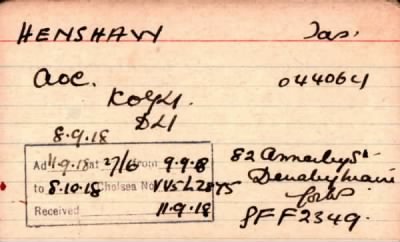 HENSHAW Jas.
aoc. 044064
KOYLI.
DLI
8.9.18
Ad 11.9.18 at 27/6 from 9.9.18
to 8.10.18 Chelsea No VV5L2875
Received 11.9.18
82 Annerley St
Denaby Main
Yorks
9FF2349.